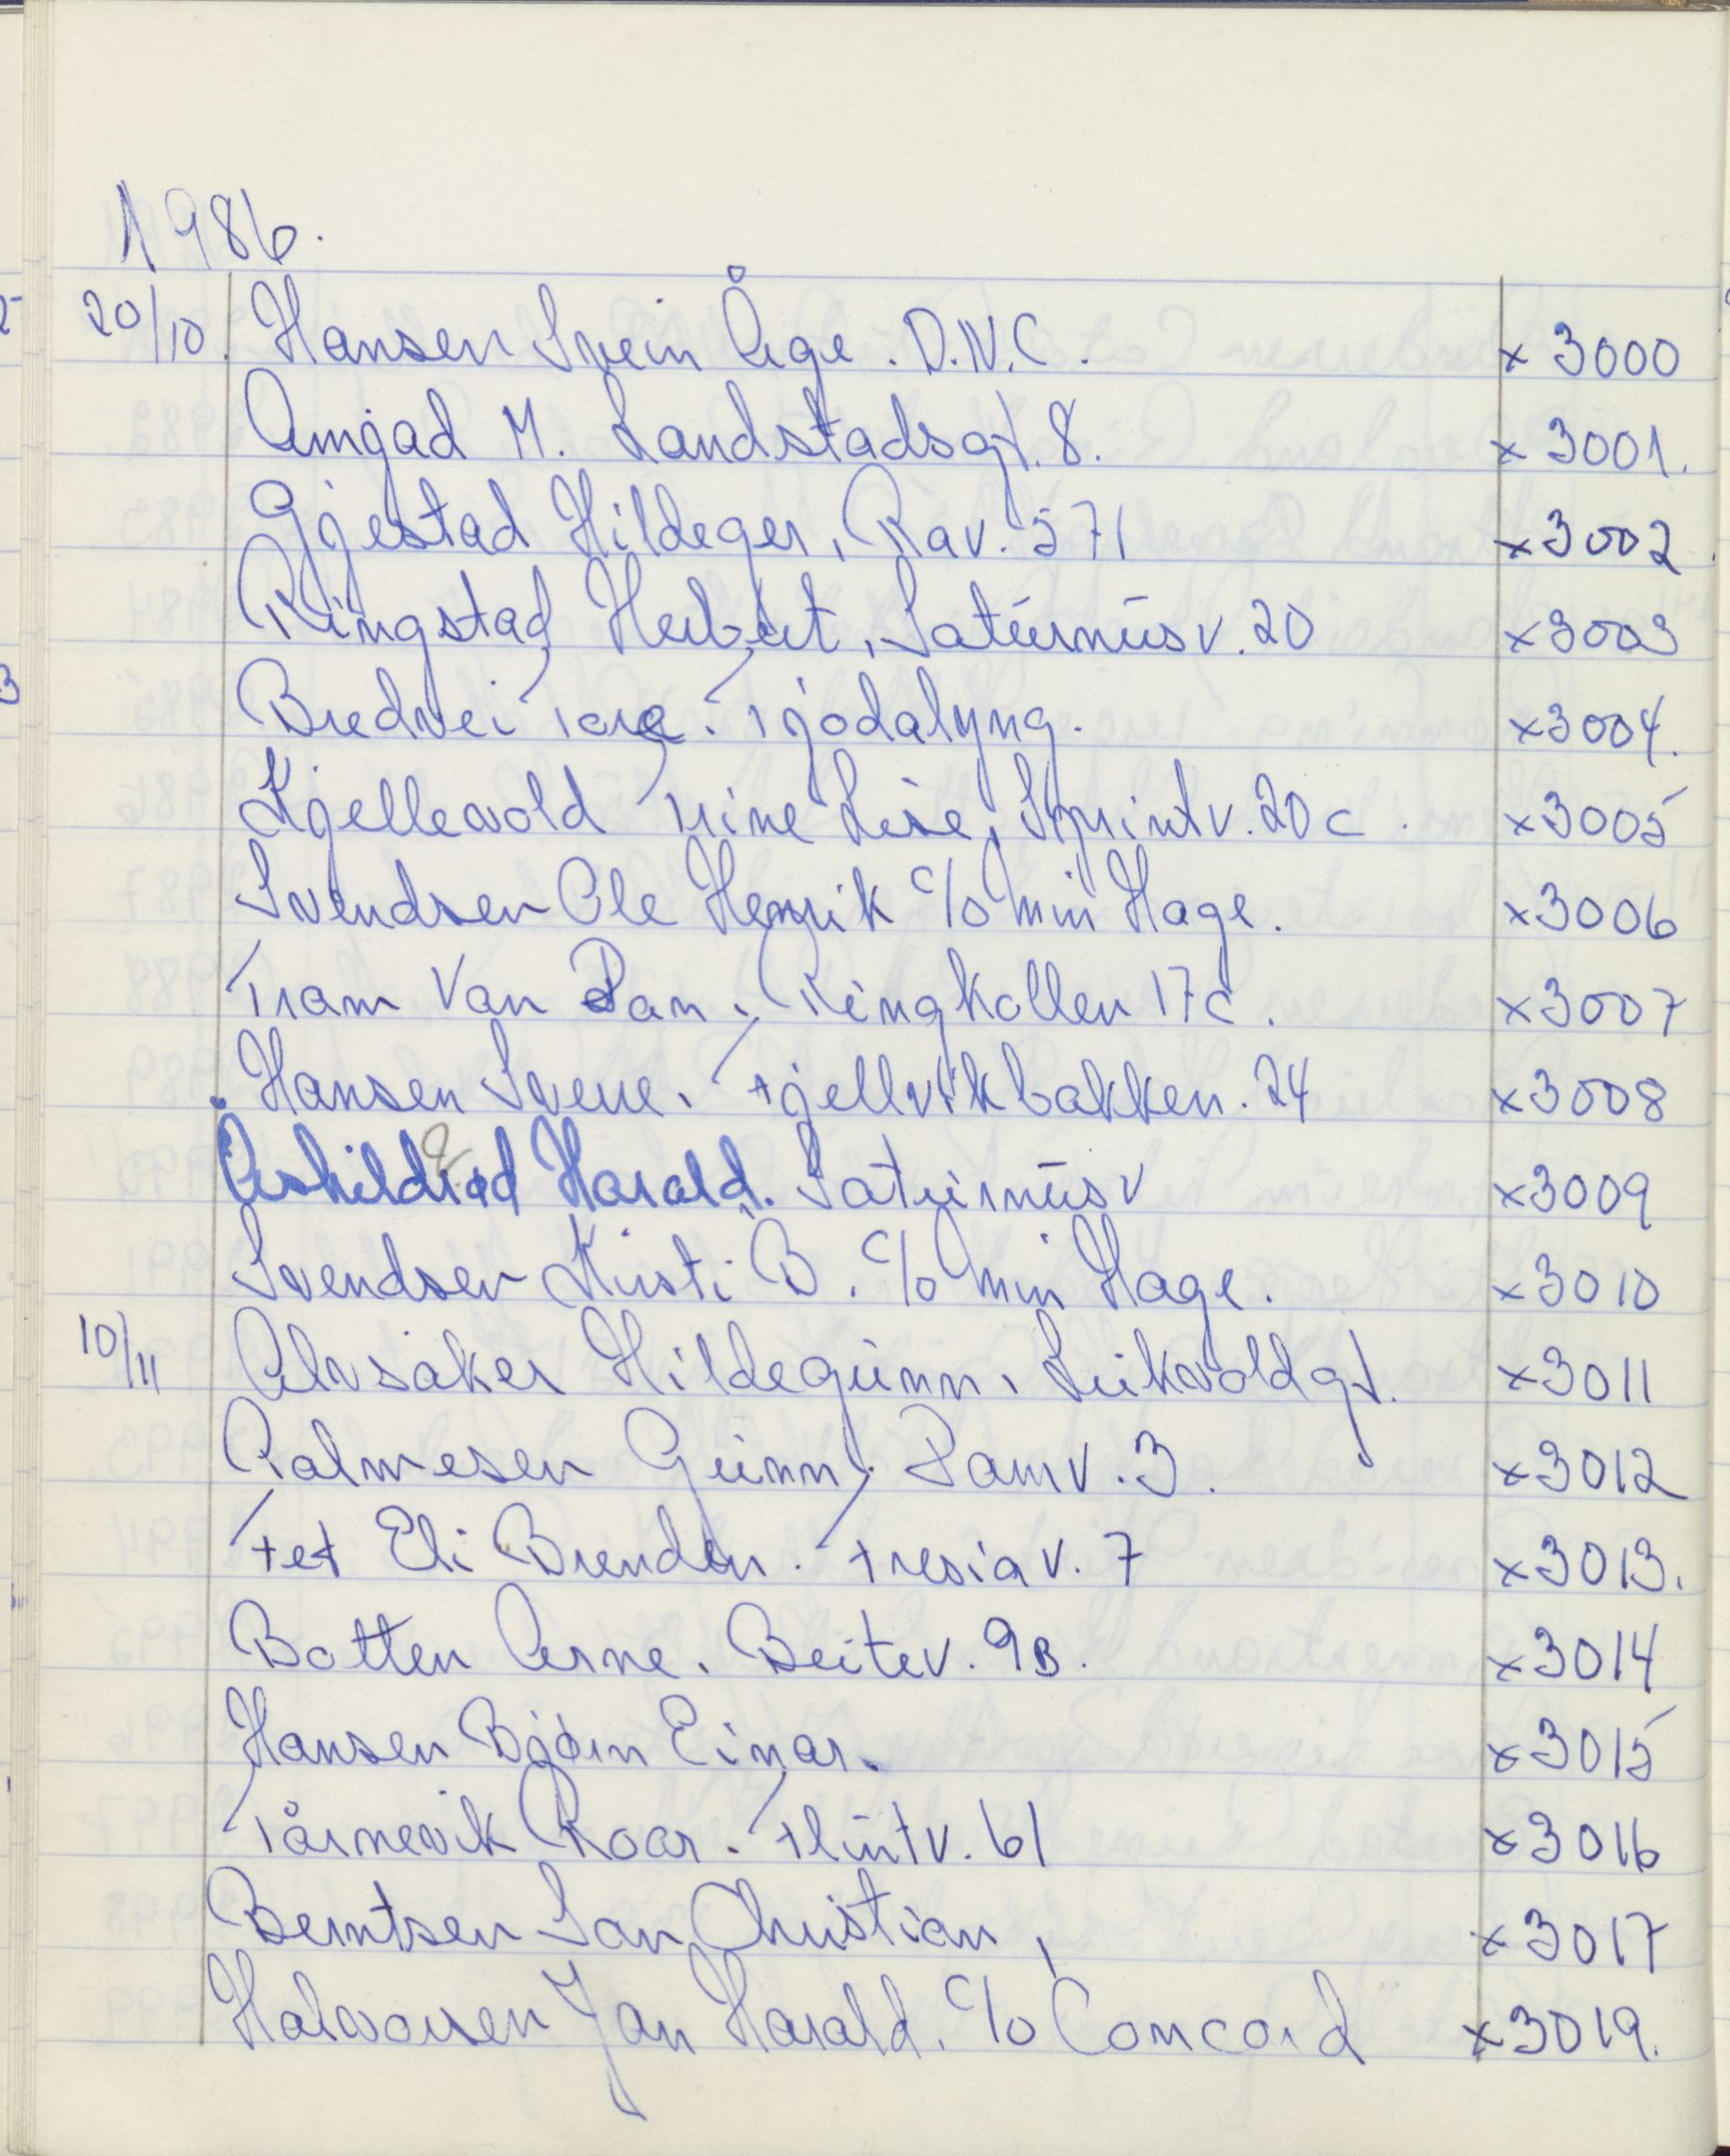 1986.
20/10. Hansen Svein Åge. D.N.C. x 3000
Amjad M. Landstadsgt. 8. x 3001.
Gjestad Hildeger, Rav. 571 x 3002
Ringstad Herbert, Saturnusv. 20 x 3003
Bredvei Tore. Tjodalyng. x 3004.
Kjellevold Trine Lise, Sprintv. 20c. x 3005
Svendsen Ole Henrik c/o Min Hage. x 3006
Tram Van Dan. Ringkollen 17c. x 3007
Hansen Svene. Fjellvikbakken. 24 x 3008
Askildrød Harald. Saturnusv x 3009
Svendsen Kirsti B. c/o Min Hage. x 3010
10/11 Alvsåker Hildegunn, Leikvoldgt. x 3011
Ralmesen Gunn, Damv. 3. x 3012
Fet Eli Brenden. Fresiav. 7 x 3013.
Botten Arne. Beitev. 9B. x 3014
Hansen Bjørn Einar. x 3015
Tårnevik Roar. Flintv. 61 x 3016
Berntsen Jan Christian, x 3017
Halvorsen Jan Harald. c/o Concord x 3019.